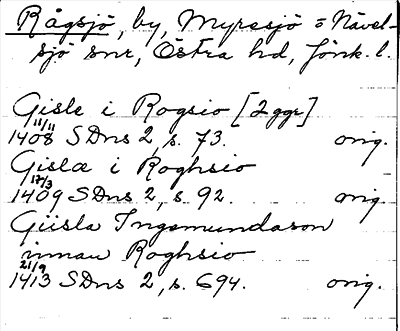 Rågsjö, by, Myresjö = Nävel-
sjö snr, Östra hd, Jönk. l.
Gisle i Rogsio [2 ggr]
11/11
1408 SDns 2, s. 73. orig.
Gislæ i Roghsio
17/3
1409 SDns 2, s. 92. orig.
Giisla Ingemundason
innan Roghsio
21/9
1413 SDns 2, s. 694. orig.